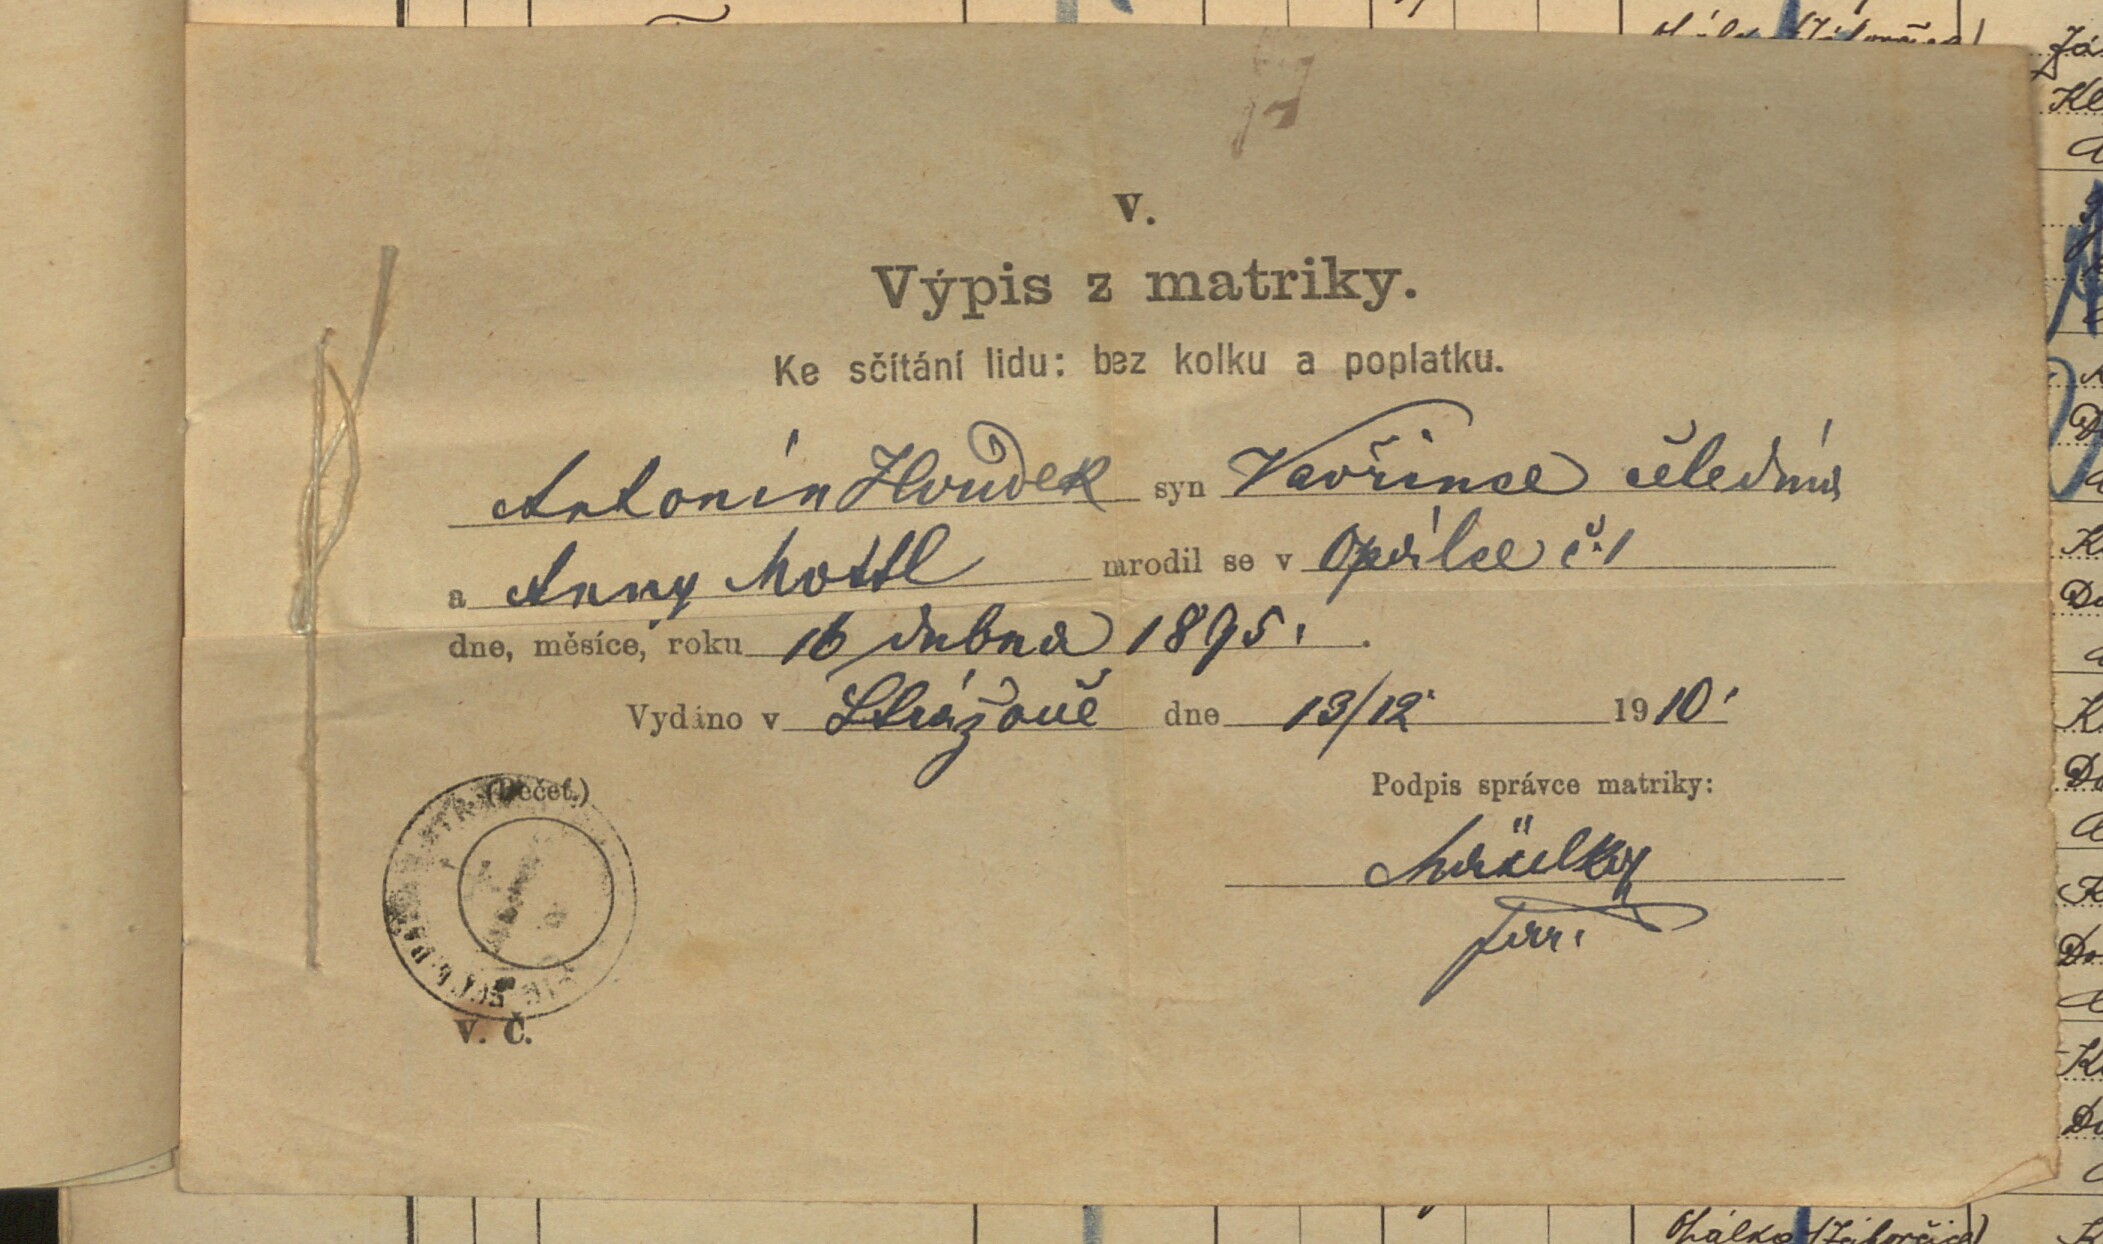 V.
Výpis z matriky.
Ke sčítání lidu: bez kolku a poplatku.
Antonín Houdek syn Vavřince čeledína
a Anny Mottl narodil se v Opálce č. 1
dne, měsíce, roku 16 dubna 1895.
Vydáno v Strážově dne 13/12 1910.
(Pečeť.)
Podpis správce matriky:
farř.
V. Č.